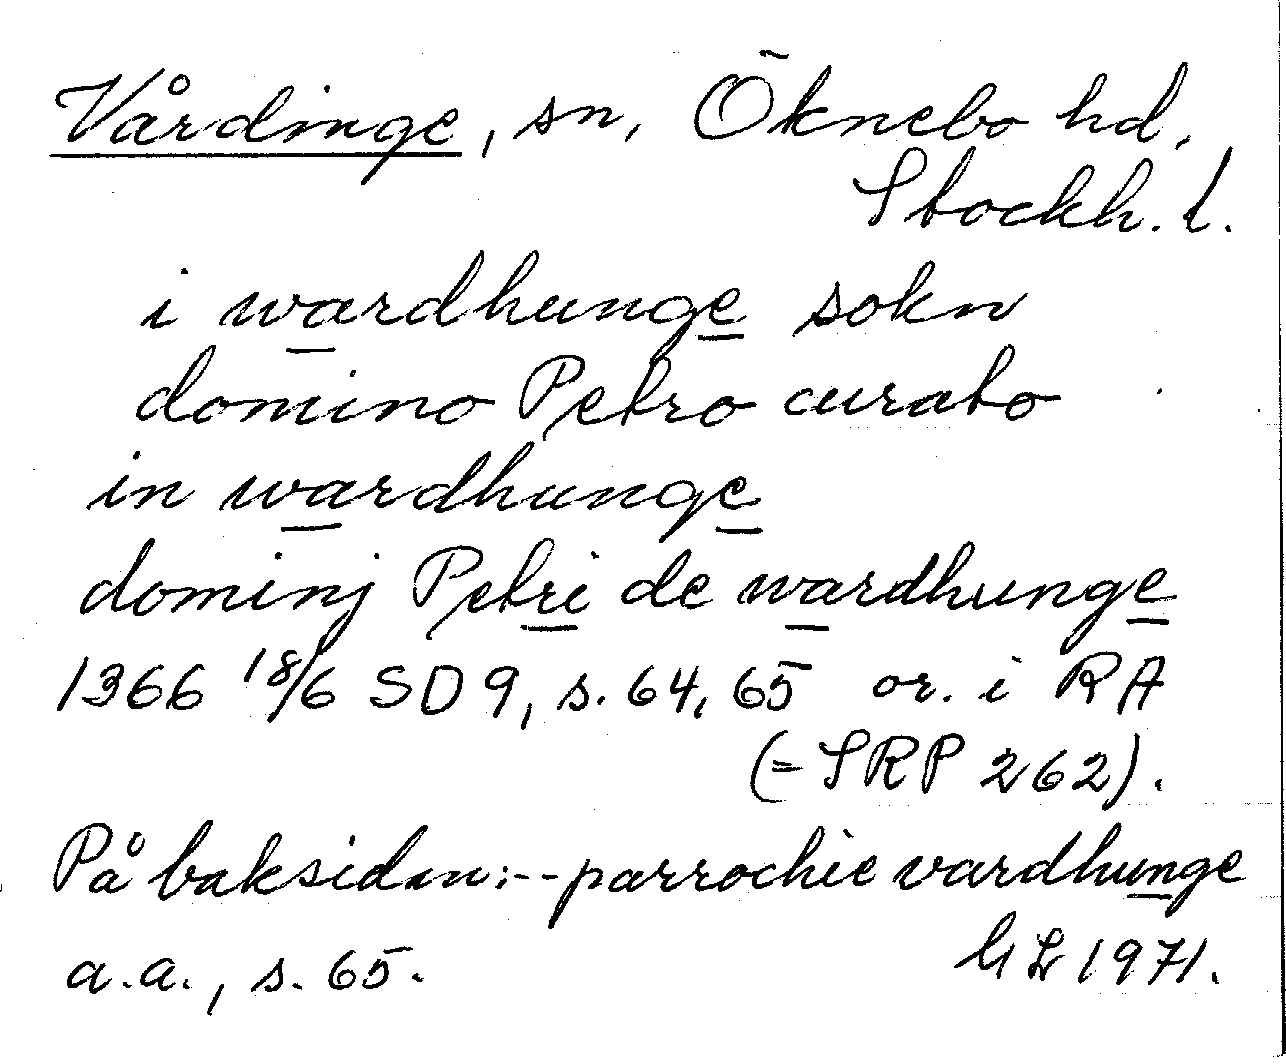 Vårdinge, sn, Öknebo hd.
Stockh. l.
i wardhunge sokn
domino Petro curato
in wardhunge
dominj Petri de wardhunge
1366 18/6 SD 9, s. 64, 65 or. i RA
(= SRP 262).
På baksidan: -- parrochie vardhunge
a.a., s. 65. GL 1971.